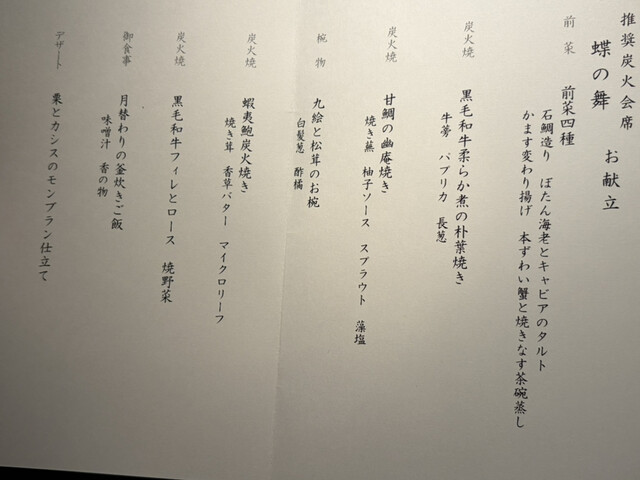 推奨炭火会席
蝶の舞　お献立
前菜　前菜四種
石鯛造り　ぼたん海老とキャビアのタルト
かます変わり揚げ　本ずわい蟹と焼きなす茶碗蒸し
炭火焼　黒毛和牛柔らか煮の朴葉焼き
牛蒡　パプリカ　長葱
炭火焼　甘鯛の幽庵焼き
焼き蕪　柚子ソース　スプラウト　藻塩
椀物　九絵と松茸のお椀
白髪葱　酢橘
炭火焼　蝦夷鮑炭火焼き
焼き茸　香草バター　マイクロリーフ
炭火焼　黒毛和牛フィレとロース　焼野菜
御食事　月替わりの釜炊きご飯
味噌汁　香の物
デザート　栗とカシスのモンブラン仕立て